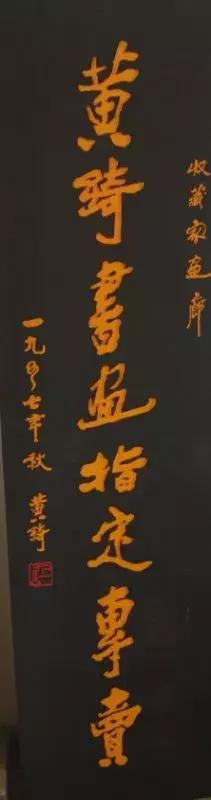 收藏家画廊
黄綺書画指定專賣
一九九七年秋 黄綺